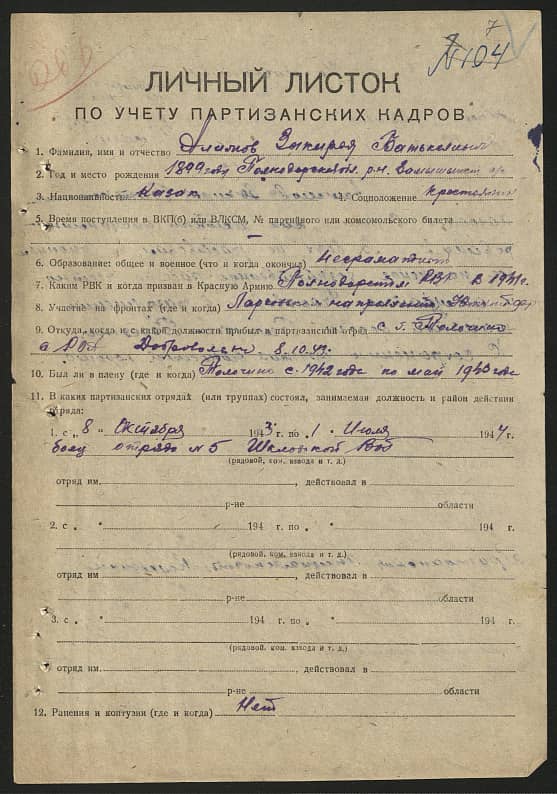 7
№ 104
ЛИЧНЫЙ ЛИСТОК
ПО УЧЕТУ ПАРТИЗАНСКИХ КАДРОВ
1. Фамилия, имя и отчество Алимов Закирея
2. Год и место рождения 1899 году р-н.
3. Национальность Казак 4. Соцположение крестьянин
5. Время поступления в ВКП(б) или ВЛКСМ, № партийного или комсомольского билета
—
6. Образование: общее и военное (что и когда окончил) Неграмотный
7. Каким РВК и когда призван в Красную Армию РВК в 1941 г.
8. Участие на фронтах (где и когда)
9. Откуда, когда и с какой должности прибыл в партизанский отряд с г. Толочино
8.10.43.
10. Был ли в плену (где и когда) Толочино с 1942 годе по май 1943 годе
11. В каких партизанских отрядах (или группах) состоял, занимаемая должность и район действия
отряда:
1. с „ 8 „ Октября 1943 г. по „ 1 „ Июля 1944 г.
боец отряда №5 Шкловской
(рядовой, ком. взвода и т. д.)
отряд им. , действовал в
р-не области
2. с „ “ 194 г. по „ “ 194 г.
(рядовой, ком. взвода и т. д.)
отряд им. , действовал в
р-не области
3. с „ “ 194 г. по „ “ 194 г.
(рядовой, ком. взвода и т. д.)
отряд им. , действовал в
р-не области
12. Ранения и контузии (где и когда) Нет